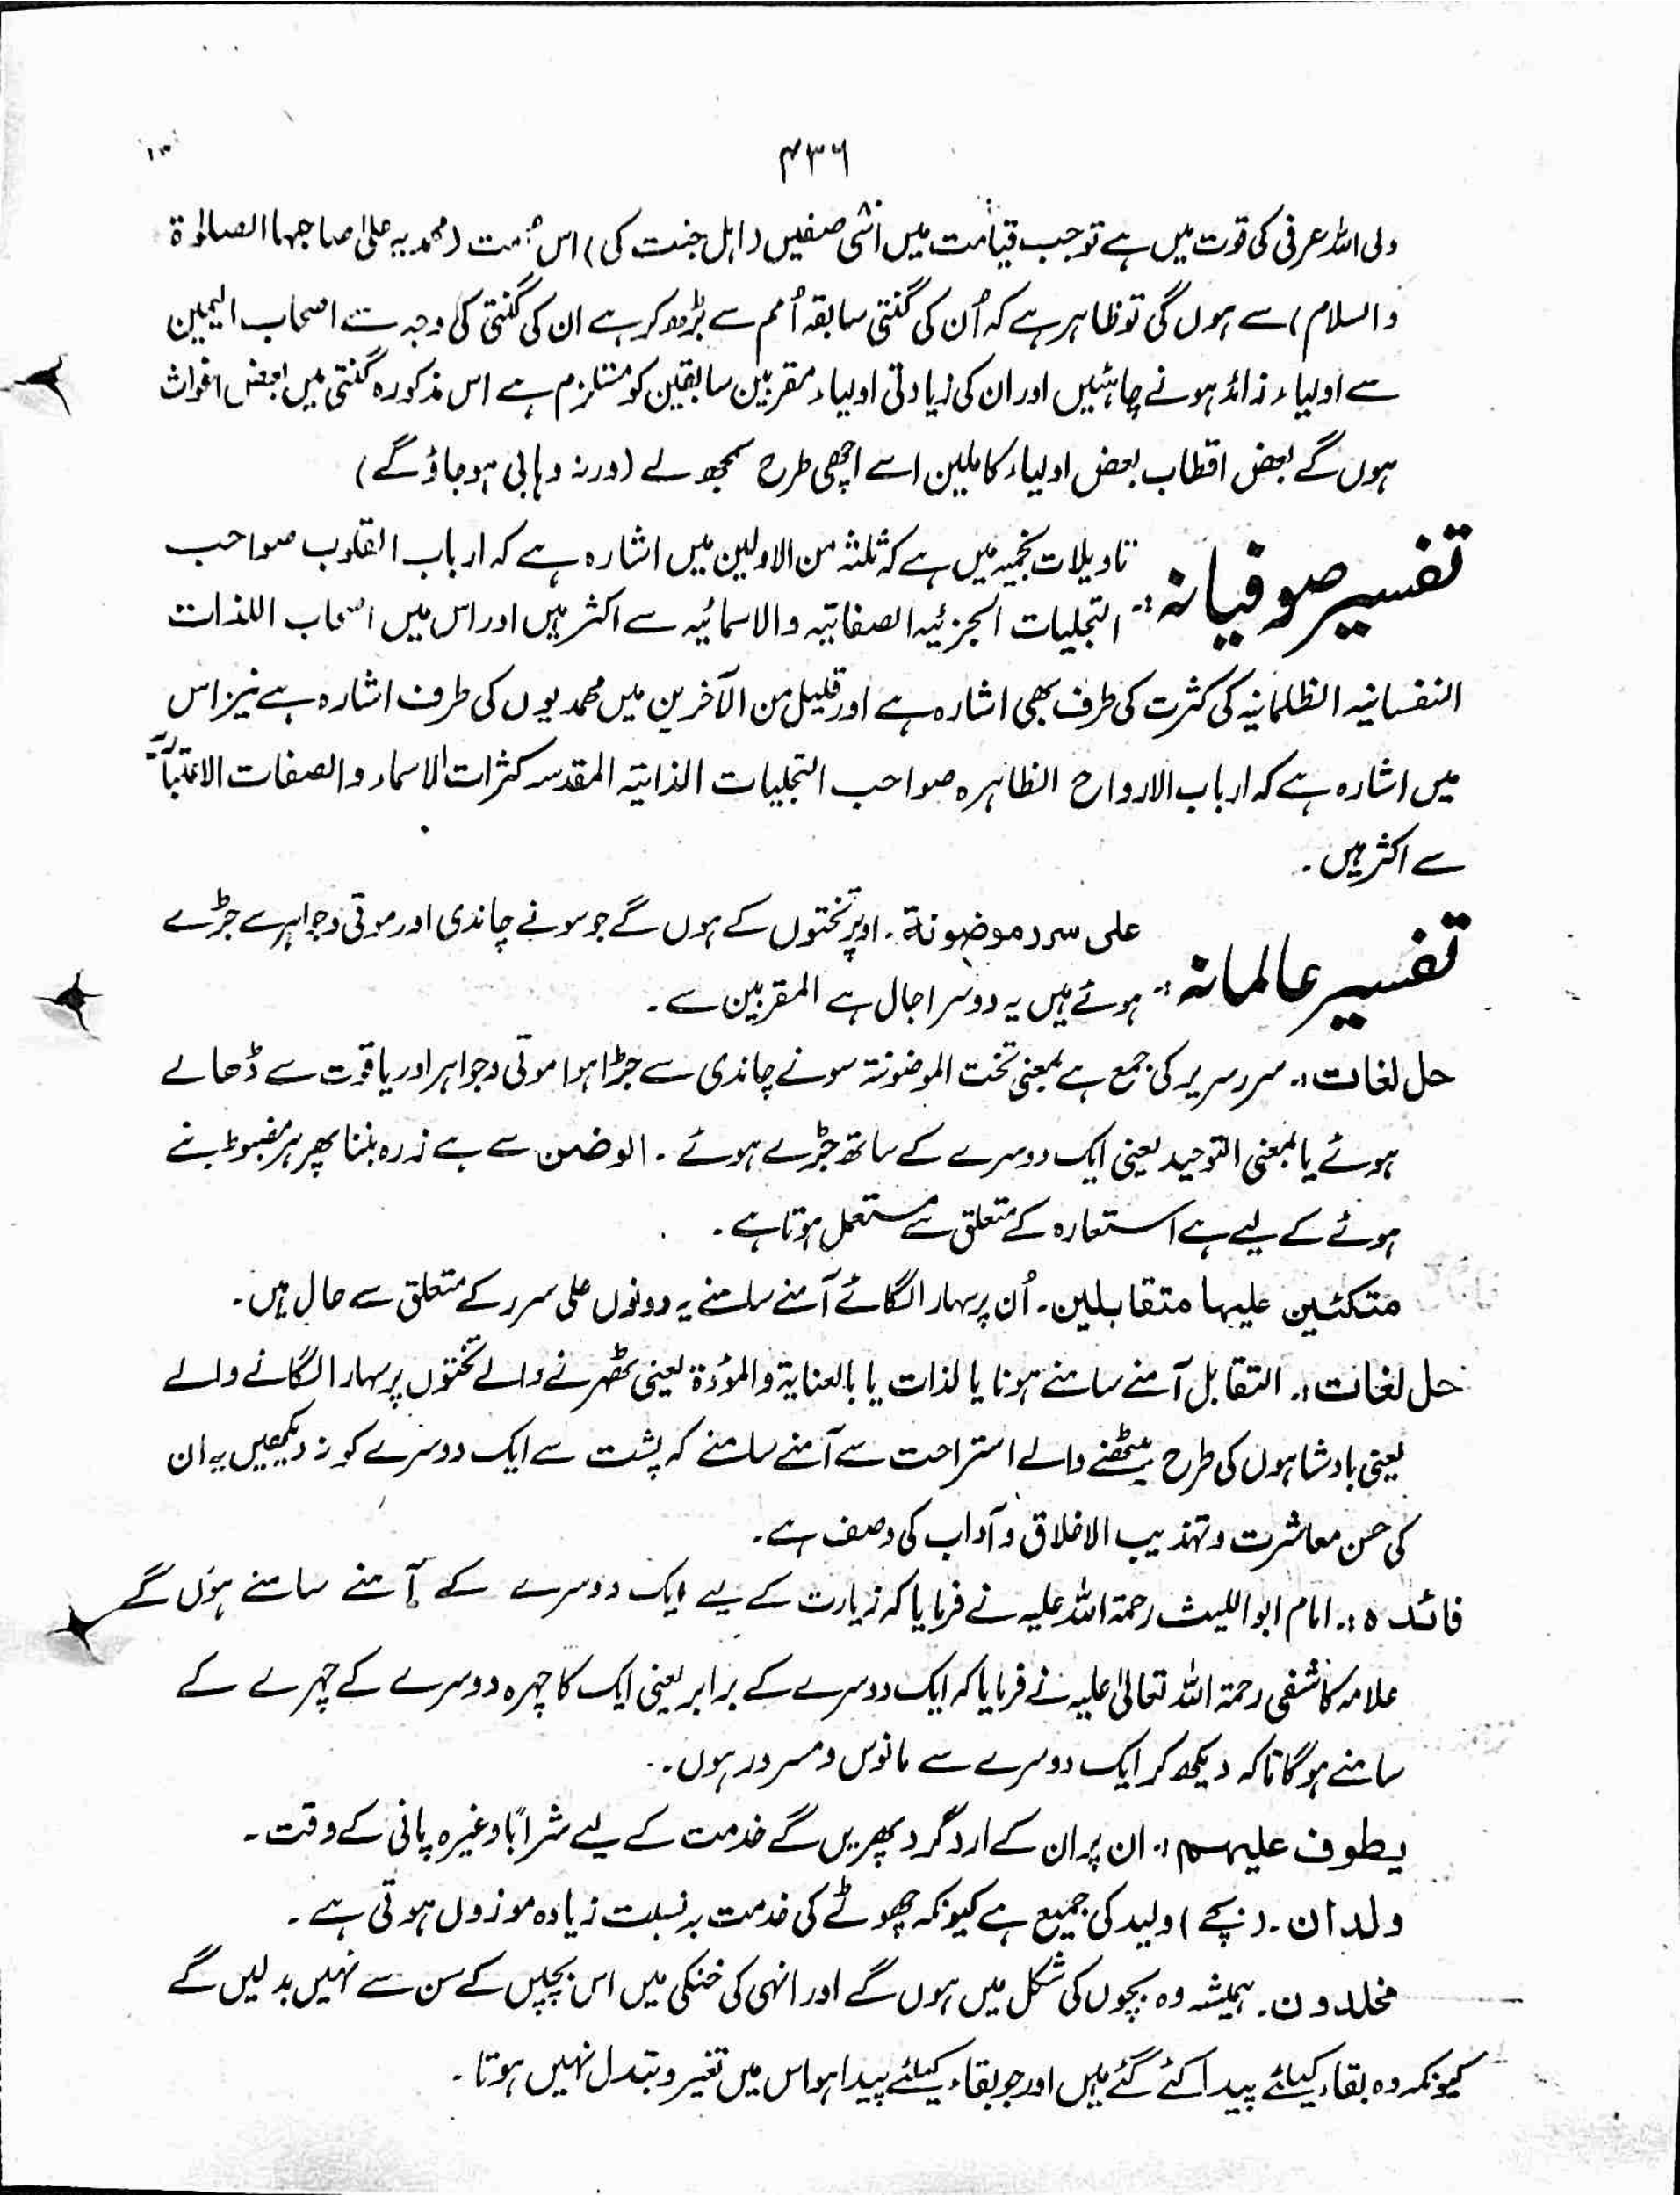 ۴۳۶
ولی اللہ عرفی کی قوت میں ہے تو جب قیامت میں اسّی صفیں (اہل جنت کی) اس امت (محمدیہ علیٰ صاحبہا الصلوٰۃ
والسلام) سے ہوں گی تو ظاہر ہے کہ اُن کی گنتی سابقہ اُمم سے بڑھ کر ہے ان کی گنتی کی وجہ سے اصحاب الیمین
سے اولیاء زائد ہونے چاہئیں اور ان کی زیادتی اولیاء مقربین سابقین کو مستلزم ہے اس مذکورہ گنتی میں بعض اغواث
ہوں گے بعض اقطاب بعض اولیاء کاملین اسے اچھی طرح سمجھ لے (ورنہ وہابی ہو جاؤ گے)
تفسیر صوفیانہ :- تاویلات نجمیہ میں ہے کہ ثلثۃ من الاولین میں اشارہ ہے کہ ارباب القلوب صواحب
التجلیات الجزئیہ الصفاتیہ والاسمائیہ سے اکثر ہیں اور اس میں اصحاب اللذات
النفسانیہ الظلمانیہ کی کثرت کی طرف بھی اشارہ ہے اور قلیل من الآخرین میں محمدیوں کی طرف اشارہ ہے نیز اس
میں اشارہ ہے کہ ارباب الارواح الظاہرہ صواحب التجلیات الذاتیۃ المقدسہ کثرات الاسماء والصفات الاعتباریہ
سے اکثر ہیں۔
تفسیر عالمانہ :- علی سرر موضونۃ۔ اوپر تختوں کے ہوں گے جو سونے چاندی اور موتی وجواہر سے جڑے
ہوئے ہیں یہ دوسرا حال ہے المقربین سے۔
حل لغات :۔ سرر سریر کی جمع ہے بمعنی تخت الموضونۃ سونے چاندی سے جڑا ہوا موتی وجواہر اور یاقوت سے ڈھالے
ہوئے یا بمعنی التوحید یعنی ایک دوسرے کے ساتھ جڑے ہوئے۔ الوضن سے ہے زرہ بننا پھر ہر مضبوط بنے
ہوئے کے لیے ہے استعارہ کے متعلق سے مستعمل ہوتا ہے۔
متکئین علیہا متقابلین۔ اُن پر سہارا لگائے آمنے سامنے یہ دونوں علی سرر کے متعلق سے حال ہیں۔
حل لغات :۔ التقابل آمنے سامنے ہونا یا لذات یا بالعنایۃ والمؤدۃ یعنی ٹھہرنے والے تختوں پر سہارا لگانے والے
یعنی بادشاہوں کی طرح بیٹھنے والے استراحت سے آمنے سامنے کہ پشت سے ایک دوسرے کو نہ دیکھیں یہ ان
کی حسن معاشرت وتہذیب الاخلاق وآداب کی وصف ہے۔
فائدہ :۔ امام ابواللیث رحمۃ اللہ علیہ نے فرمایا کہ زیارت کے لیے ایک دوسرے کے آمنے سامنے ہوں گے
علامہ کاشفی رحمۃ اللہ تعالیٰ علیہ نے فرمایا کہ ایک دوسرے کے برابر یعنی ایک کا چہرہ دوسرے کے چہرے کے
سامنے ہو گا تاکہ دیکھ کر ایک دوسرے سے مانوس ومسرور ہوں۔
یطوف علیہم :۔ ان پر ان کے ارد گرد پھریں گے خدمت کے لیے شراباً وغیرہ پانی کے وقت۔
ولدان۔ (بچے) ولید کی جمیع ہے کیونکہ چھوٹے کی خدمت بہ نسبت زیادہ موزوں ہوتی ہے۔
مخلدون۔ ہمیشہ وہ بچوں کی شکل میں ہوں گے اور انہی کی خنکی میں اس بچپن کے سن سے نہیں بدلیں گے
کیونکہ وہ بقاء کیلئے پیدا کئے گئے ہیں اور جو بقاء کیلئے پیدا ہو اس میں تغیر وتبدل نہیں ہوتا۔